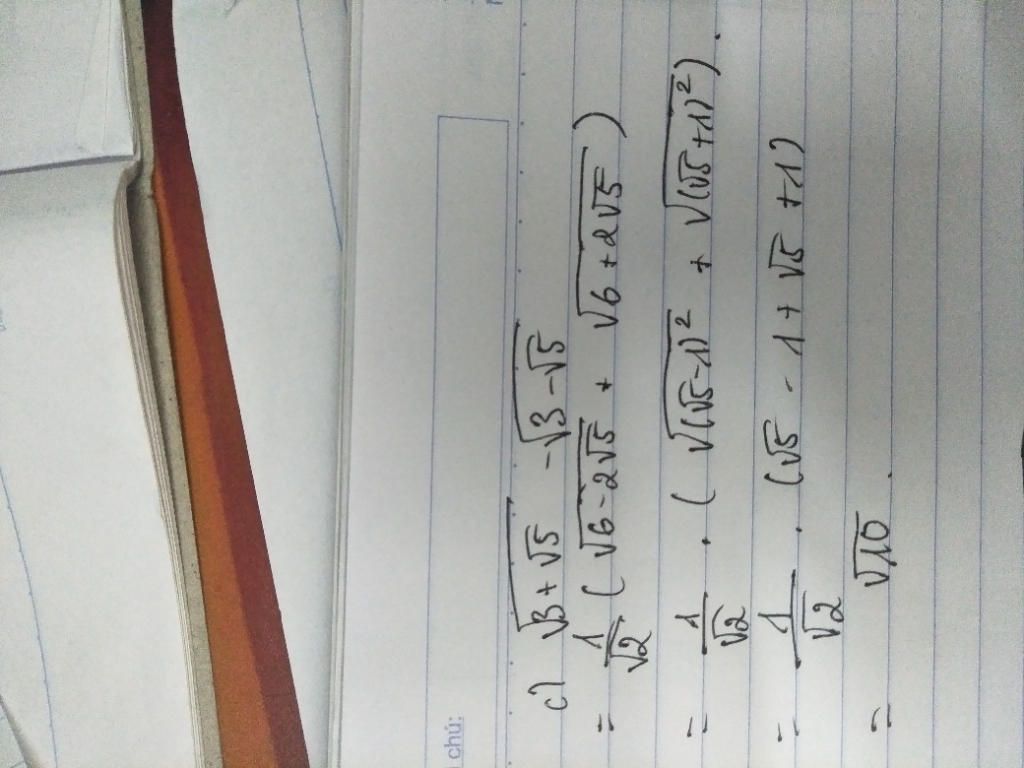 chú:
c) √(3+√5) - √(3-√5)
= 1/√2 (√(6-2√5) + √(6+2√5))
= 1/√2 . (√((√5-1)²) + √((√5+1)²)).
= 1/√2 . (√5 - 1 + √5 + 1)
= √10.